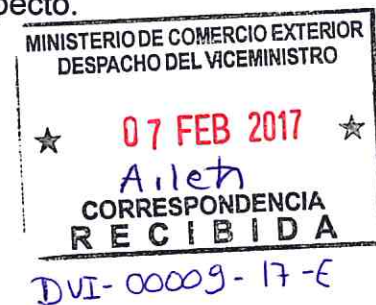 pecto.
MINISTERIO DE COMERCIO EXTERIOR
DESPACHO DEL VICEMINISTRO
07 FEB 2017
Aileth
CORRESPONDENCIA
RECIBIDA
DVI-00009-17-E